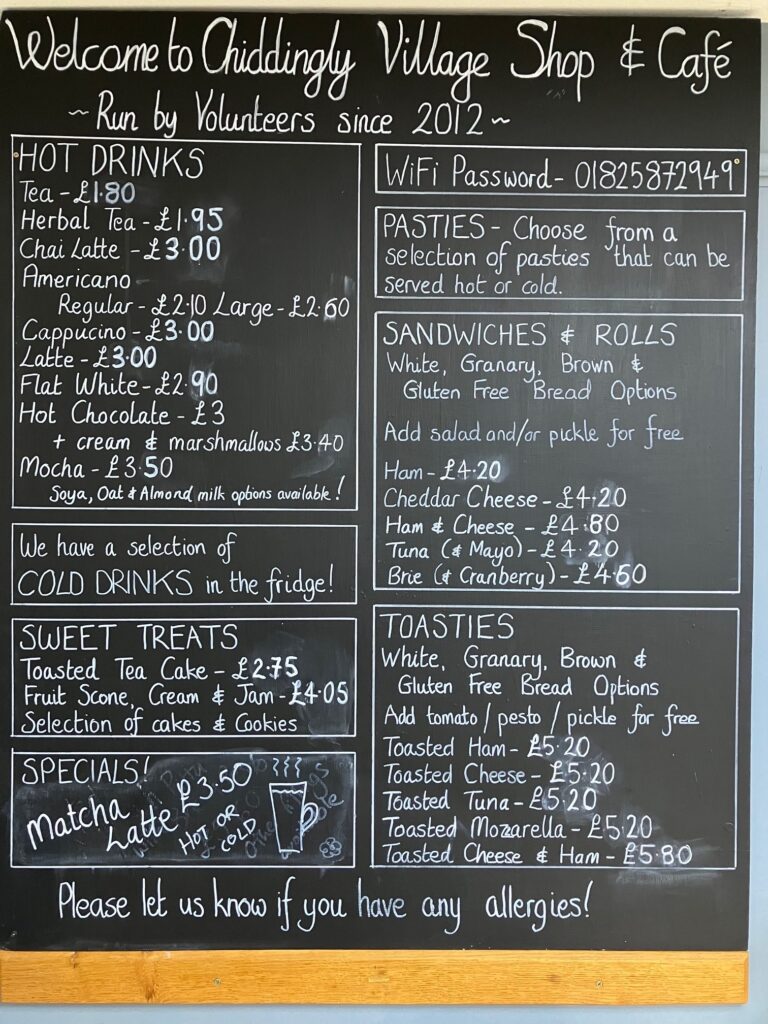 Welcome to Chiddingly Village Shop & Café
~Run by Volunteers since 2012~
HOT DRINKS
Tea - £1.80
Herbal Tea - £1.95
Chai Latte - £3.00
Americano
Regular - £2.10 Large - £2.60
Cappucino - £3.00
Latte - £3.00
Flat White - £2.90
Hot Chocolate - £3
+ cream & marshmallows £3.40
Mocha - £3.50
Soya, Oat & Almond milk options available!
We have a selection of
COLD DRINKS in the fridge!
SWEET TREATS
Toasted Tea Cake - £2.75
Fruit Scone, Cream & Jam - £4.05
Selection of cakes & Cookies
SPECIALS!
Matcha
Latte £3.50
HOT OR
COLD
WiFi Password - 01825872949
PASTIES - Choose from a
selection of pasties that can be
served hot or cold.
SANDWICHES & ROLLS
White, Granary, Brown &
Gluten Free Bread Options
Add salad and/or pickle for free
Ham - £4.20
Cheddar Cheese - £4.20
Ham & Cheese - £4.80
Tuna (& Mayo) - £4.20
Brie (& Cranberry) - £4.60
TOASTIES
White, Granary, Brown &
Gluten Free Bread Options
Add tomato / pesto / pickle for free
Toasted Ham - £5.20
Toasted Cheese - £5.20
Toasted Tuna - £5.20
Toasted Mozarella - £5.20
Toasted Cheese & Ham - £5.80
Please let us know if you have any allergies!